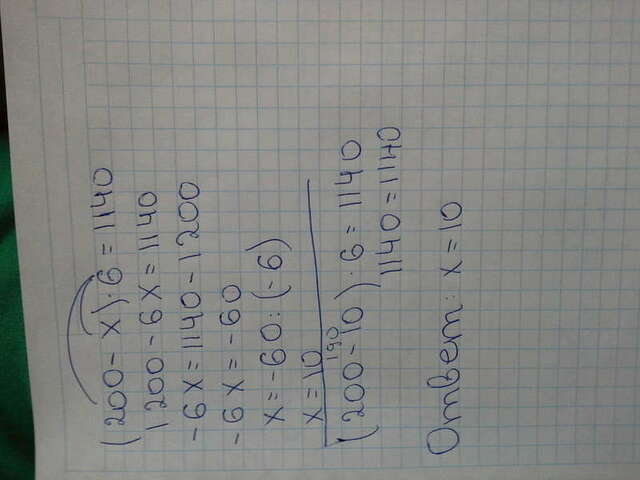 (200-x)·6=1140
1200-6x=1140
-6x=1140-1200
-6x=-60
x=-60:(-6)
x=10
190
(200-10)·6=1140
1140=1140
Ответ: x=10